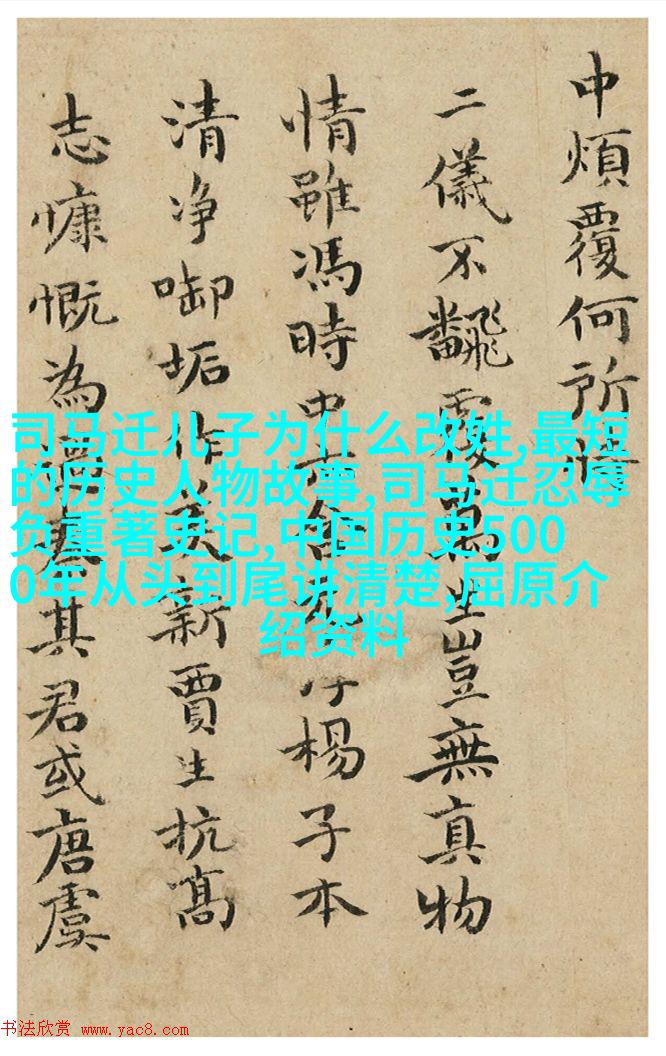 中煩覆何所
二儀不飜覆萬生豈無真物
情雖馮時中楊子本
清净啣垢作美新賈生抗高
志慷慨為其君或唐虞
司马迁儿子为什么改姓,最短
的历史人物故事,司马迁忍辱
负重著史记,中国历史500
0年从头到尾讲清楚,屈原介
绍资料
书法欣赏 www.yac8.com